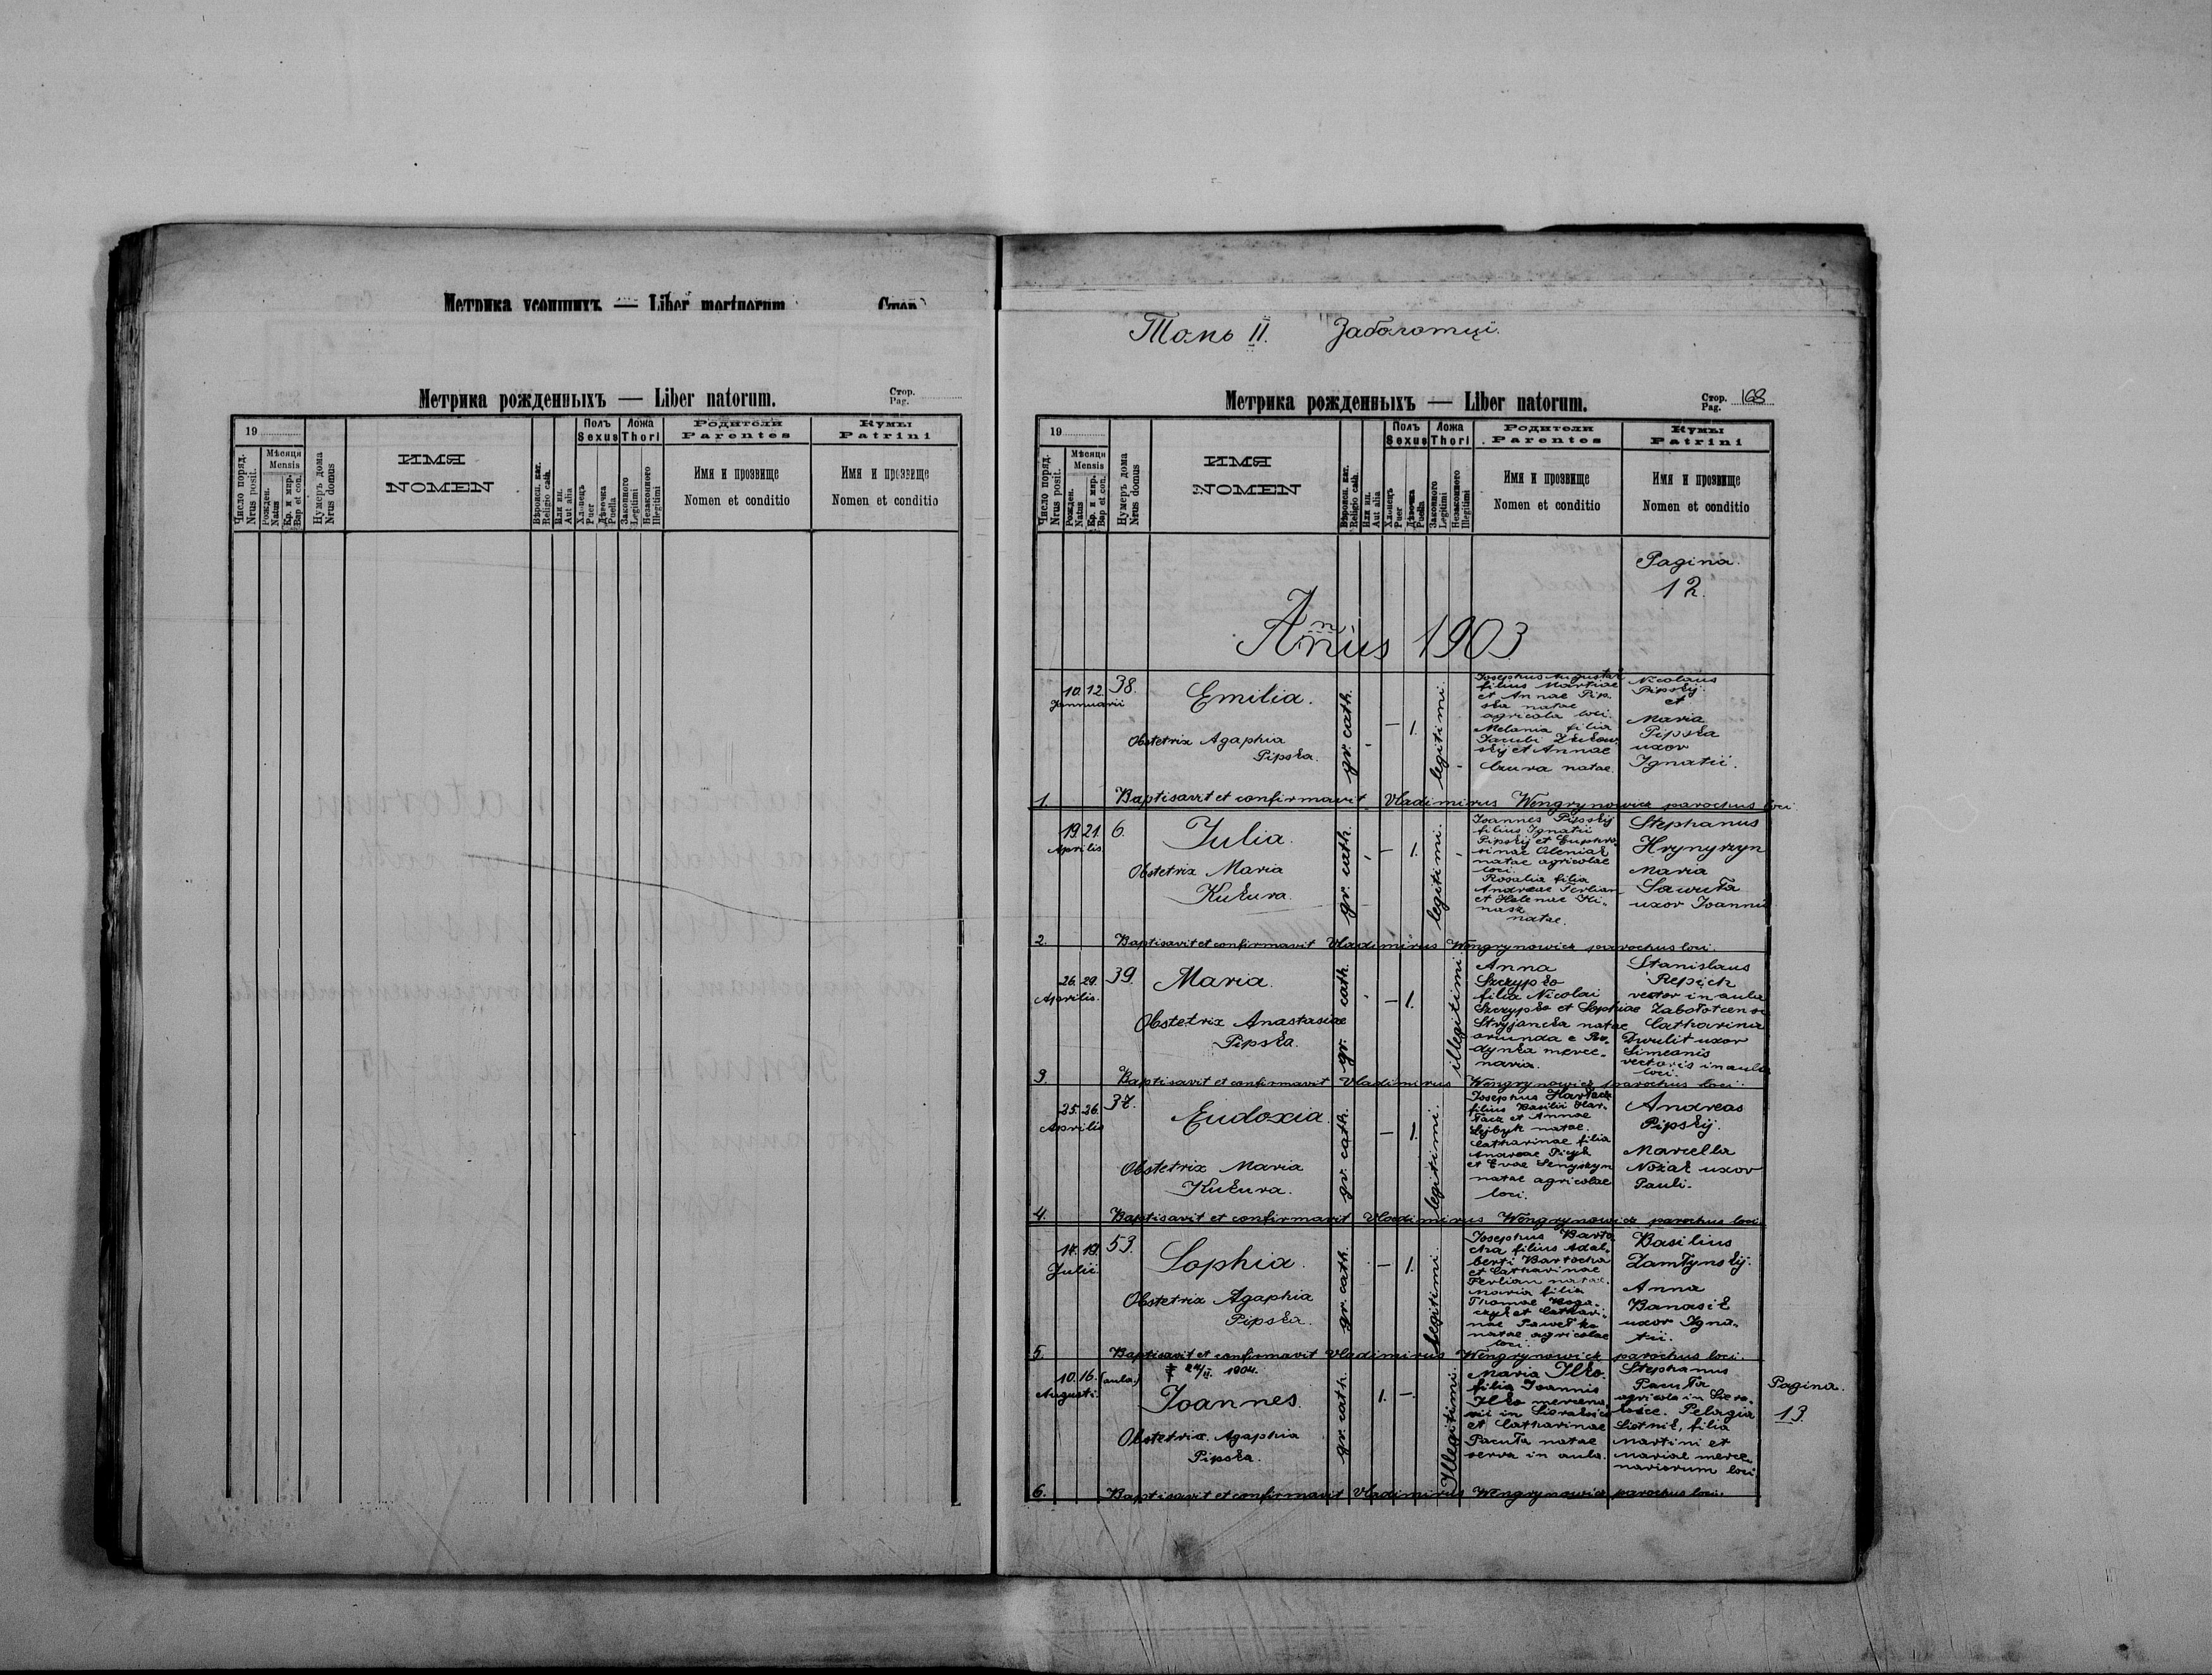 Метрика усопшихъ — Liber mortuorum. Стор.
Метрика рожденныхъ — Liber natorum.
Стор.
Pag.
19
Число поряд.
Nrus posit.
Мѣсяця
Mensis
Рожден.
Natus
Кр. и мир.
Bap et con.
Нумеръ дома
Nrus domus
ИМЯ
NOMEN
Вѣроисп. кат.
Religio cath.
Или ин.
Aut alia
Полъ
Sexus
Хлопецъ
Puer
Дѣвочка
Puella
Ложа
Thori
Законного
Legitimi
Незаконного
Illegitimi
Родители
Parentes
Имя и прозвище
Nomen et conditio
Кумы
Patrini
Имя и прозвище
Nomen et conditio
Томъ II. Заболотці.
Метрика рожденныхъ — Liber natorum.
Стор.
Pag. 168
19
Число поряд.
Nrus posit.
Мѣсяця
Mensis
Рожден.
Natus
Кр. и мир.
Bap et con.
Нумеръ дома
Nrus domus
ИМЯ
NOMEN
Вѣроисп. кат.
Religio cath.
Или ин.
Aut alia
Полъ
Sexus
Хлопецъ
Puer
Дѣвочка
Puella
Ложа
Thori
Законного
Legitimi
Незаконного
Illegitimi
Родители
Parentes
Имя и прозвище
Nomen et conditio
Кумы
Patrini
Имя и прозвище
Nomen et conditio
Pagina.
12.
Annus 1903
10. 12. 38.
Jannuarii
Emilia.
Obstetrix Agaphia
Pipska.
gr. cath.
- 1.
legitimi.
Josephus Augustak
filius Martiae
et Annae Pip.
ska natae
agricola loci.
Melania filia
Jacubi
skij et Annae
Czura natae.
Nicolaus
Pipskij.
et
Maria
Pipska
uxor
Ignatii.
1. Baptisavit et confirmavit Vladimirus Wengrynowicz parochus loci.
19. 21. 6.
Aprilis.
Julia.
Obstetrix Maria
Kukura.
gr. cath.
- 1.
legitimi.
Joannes Pipskij
filius Ignatii
Pipskij et Euphro-
sinae
natae agricolae
loci.
Rosalia filia
Andreae Ferlian
et Helenae Hi-
nask
natae.
Stephanus
Hrynyszyn
Maria
Sawuła
uxor Joannis
2. Baptisavit et confirmavit Vladimirus Wengrynowicz parochus loci.
26. 29. 39.
Aprilis.
Maria.
Obstetrix Anastasiae
Pipska.
gr. cath.
- 1.
illegitimi.
Anna
Szczypko
filia Nicolai
Szczypko et Sophiae
Stryjanska natae
oriunda e Ro-
dynka merce-
naria.
Stanislaus
Repich
vector in aula
Zabołotcensi
Catharina
Dwulit uxor
Simeonis
vectoris in aula
loci.
3. Baptisavit et confirmavit Vladimirus Wengrynowicz parochus loci.
25. 26. 37.
Aprilis
Eudoxia.
Obstetrix Maria
Kukura.
gr. cath.
- 1.
legitimi.
Josephus Harłacz
filius Basilii Har-
łacz et Annae
Lejbyk natae.
Catharinae filia
Andreae Picyk
et Evae Senyszyn
natae agricolae
loci.
Andreas
Pipskij.
Marcella
Nożak uxor
Pauli.
4. Baptisavit et confirmavit Vladimirus Wengrynowicz parochus loci
17. 19. 53.
Julii.
Sophia.
Obstetrix Agaphia
Pipska.
gr. cath.
- 1.
legitimi.
Josephus Barto-
cha filius Adal-
berti Bartocha
et Catharinae
Ferlian natae.
Maria filia
Thomae
et Cathari-
nae
natae agricolae
loci.
Basilius
Zamłynskij.
Anna
Banasik
uxor Igna-
tii.
5. Baptisavit et confirmavit Vladimirus Wengrynowicz parochus loci.
10. 16. (aula)
Augusti.
† 24/II. 1904.
Joannes.
Obstetrix. Agaphia
Pipska.
gr. cath.
1. -
Illegitimi.
Maria Ilko.
filia Joannis
Ilko mercena-
rii in
et Catharinae
Pacuła natae
serva in aula.
Stephanus
Pacuła
agricola in
Pelagia
filia
Martini et
Mariae merce-
nariorum loci
Pagina.
13.
6. Baptisavit et confirmavit Vladimirus Wengrynowicz parochus loci.